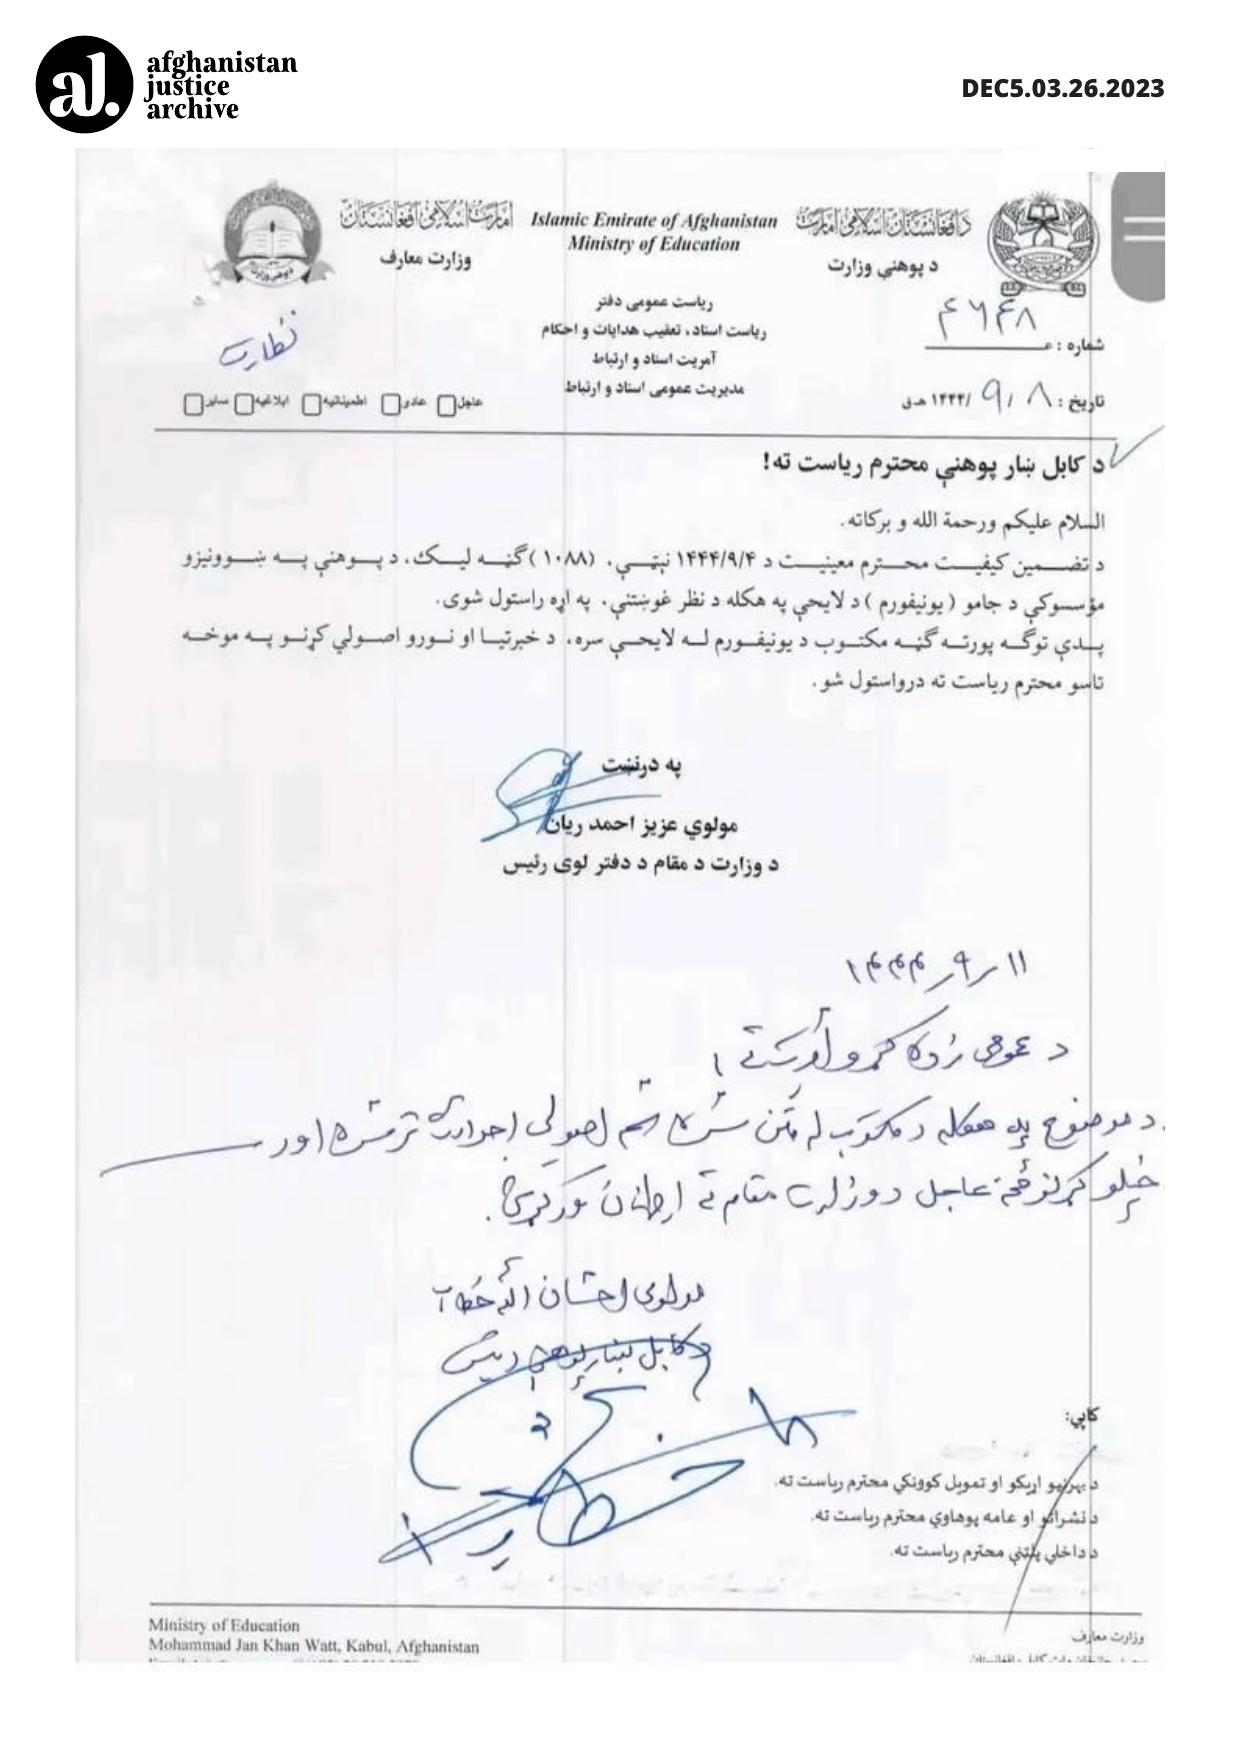 afghanistan
justice
archive
DEC5.03.26.2023
د افغانستان اسلامي امارت
Islamic Emirate of Afghanistan
امارت اسلامی افغانستان
د پوهنې وزارت
Ministry of Education
وزارت معارف
ریاست عمومی دفتر
ریاست اسناد، تعقیب هدایات و احکام
آمریت اسناد و ارتباط
مدیریت عمومی اسناد و ارتباط
شماره : ۴۶۴۸
تاریخ : ۸ / ۹ /۱۴۴۴ هـ ق
نظارت
عاجل عادی اطمینانیه ابلاغیه سایر
د کابل ښار پوهنې محترم ریاست ته!
السلام علیکم ورحمة الله و برکاته.
د تضمین کیفیت محترم معینیت د ۱۴۴۴/۹/۴ نېټې، (۱۰۸۸) گڼه لیک، د پوهنې په ښوونیزو
مؤسسوکې د جامو (یونیفورم) د لایحې په هکله د نظر غوښتنې، په اړه راستول شوی.
پدې توگه پورته گڼه مکتوب د یونیفورم له لایحې سره، د خبرتیا او نورو اصولي کړنو په موخه
تاسو محترم ریاست ته درواستول شو.
په درنښت
مولوي عزیز احمد ریان
د وزارت د مقام د دفتر لوی رئیس
۱۱ ر ۹ ر ۱۴۴۴
د عمومی زده کړو آمریت ته!
د موضوع په هکله د مکتوب له متن سره سم اصولي اجراأت ترسره او
خپلو کړنو څخه عاجل د وزارت مقام ته اطمنان ورکړئ.
مولوی احسان الله خطاب
د کابل ښار پوهنې رئیس
کاپي:
د بهرنیو اړیکو او تمویل کوونکي محترم ریاست ته.
د نشراتو او عامه پوهاوي محترم ریاست ته.
د داخلي پلټنې محترم ریاست ته.
Ministry of Education
وزارت معارف
Mohammad Jan Khan Watt, Kabul, Afghanistan